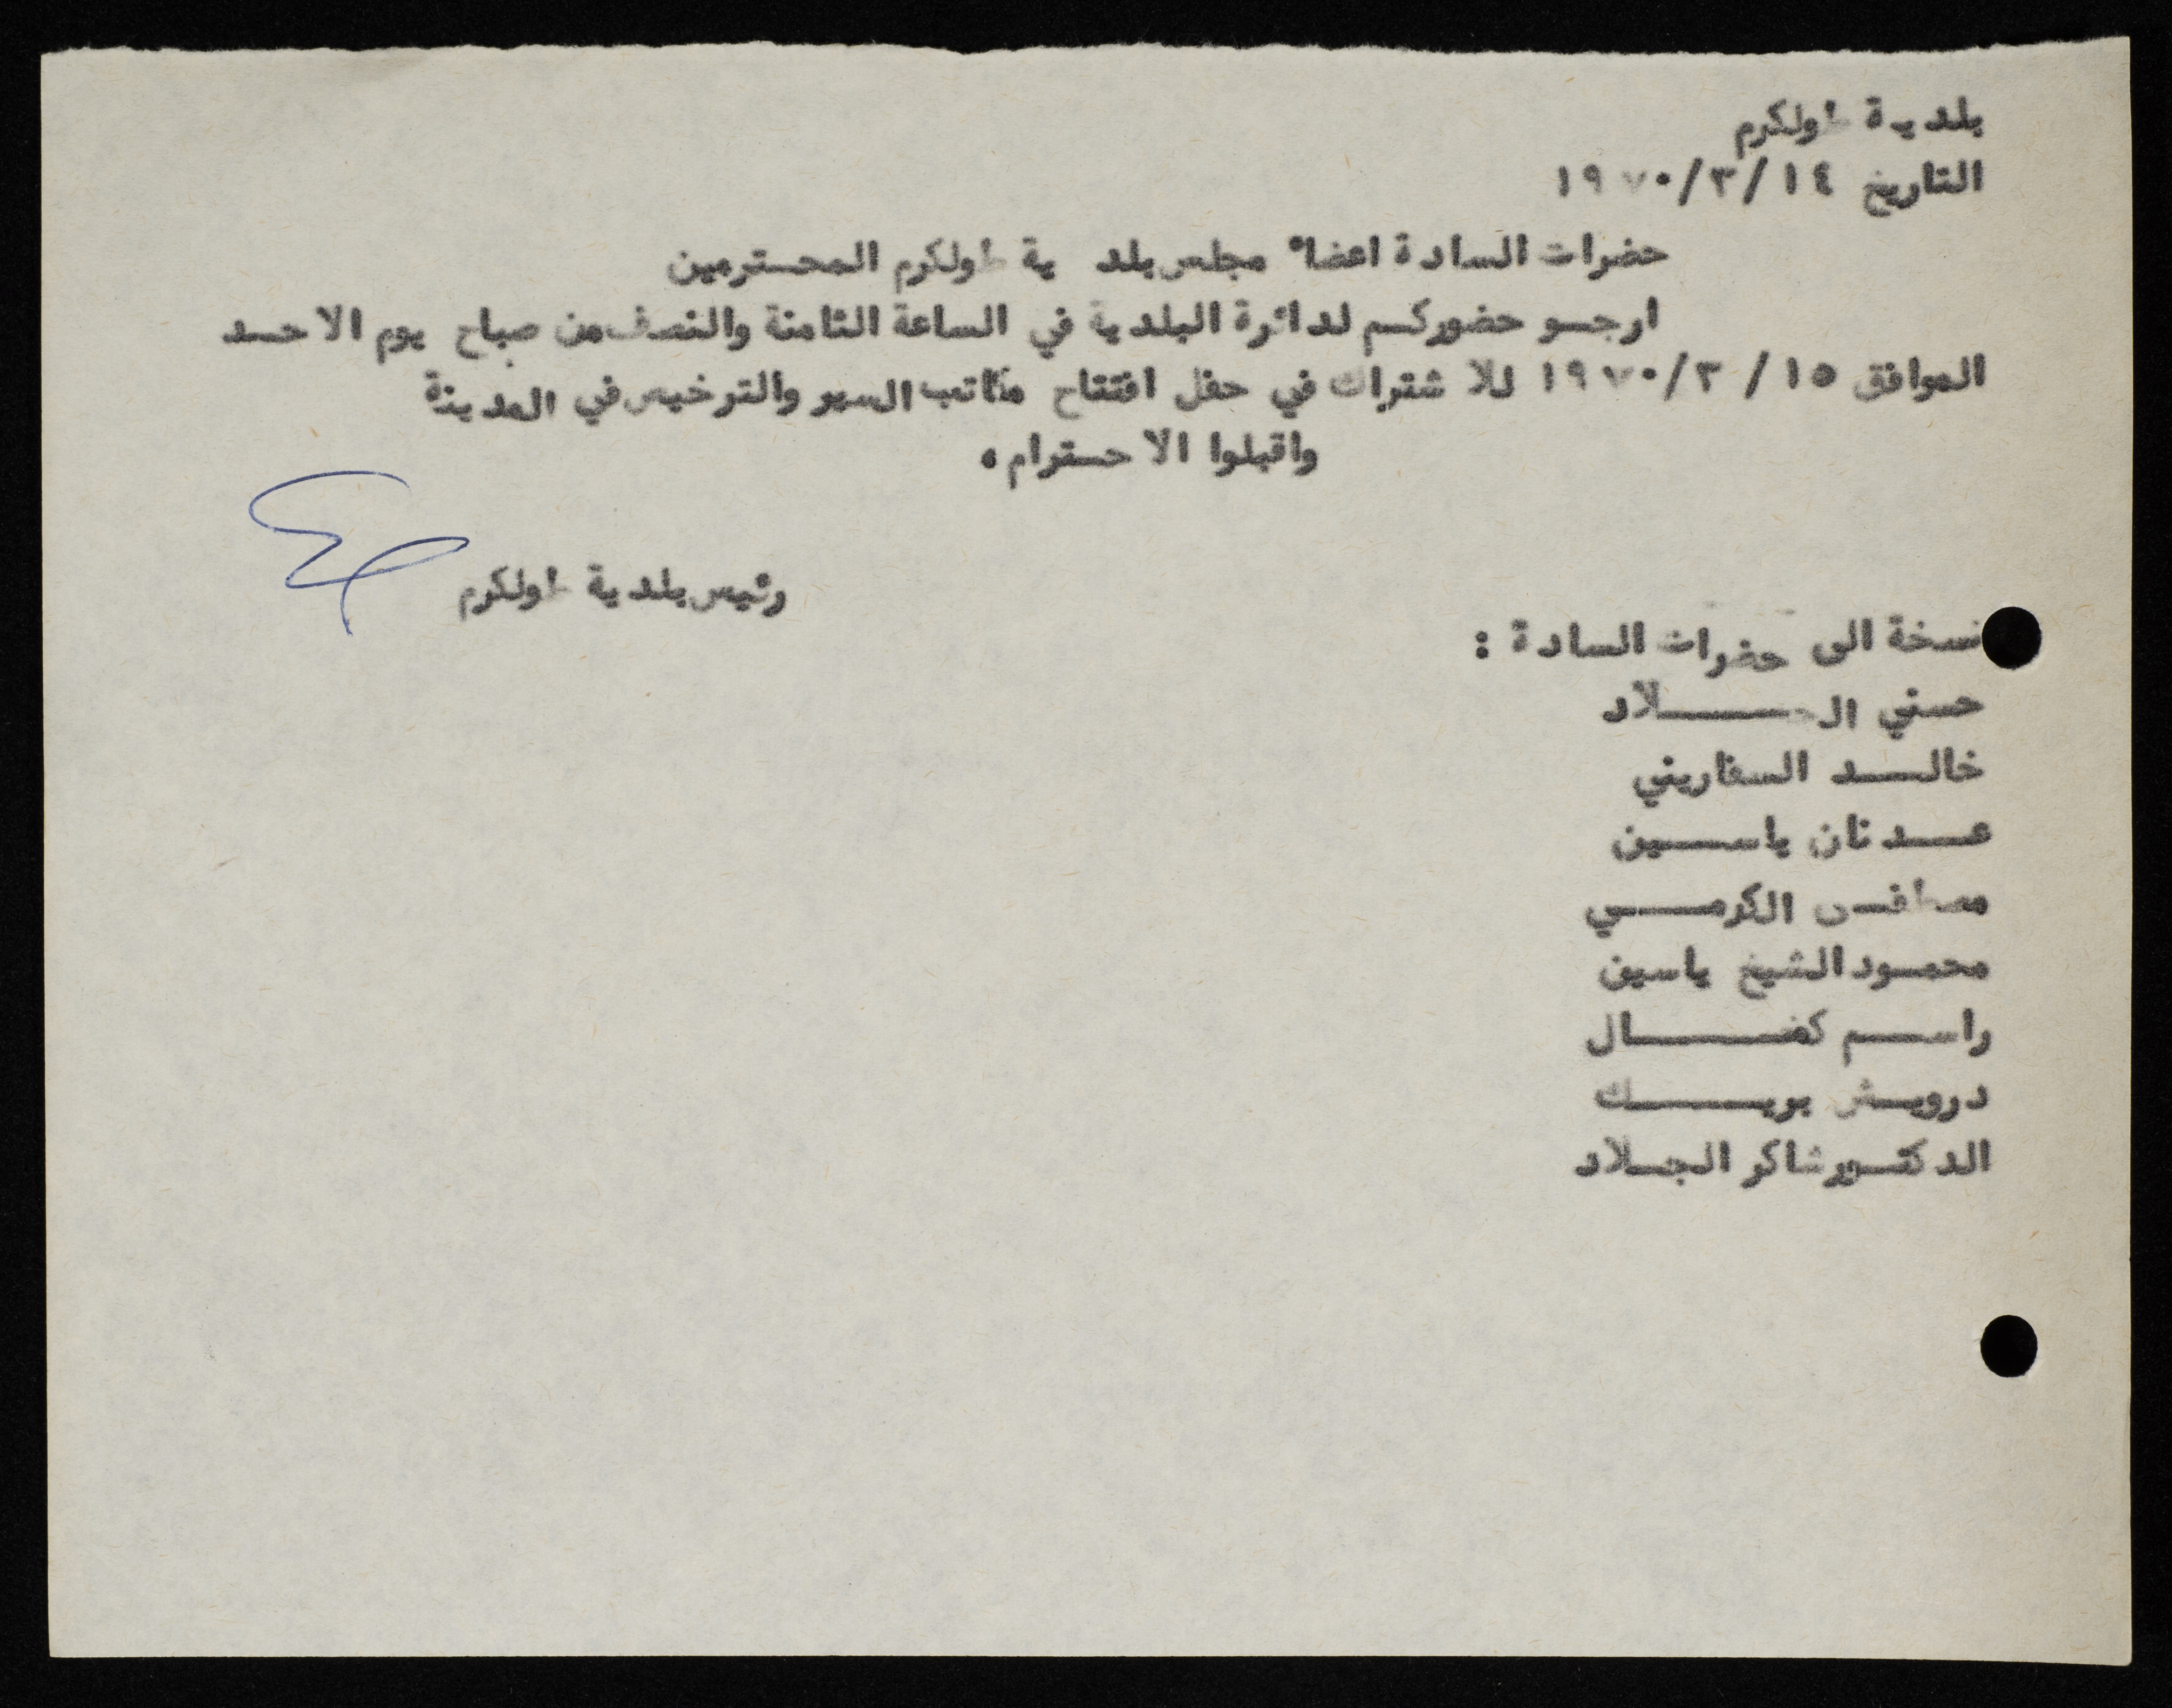 بلدية طولكرم
التاريخ ١٩٧٠/٣/١٤
حضرات السادة اعضاء مجلس بلدية طولكرم المحترمين
ارجو حضوركم لدائرة البلدية في الساعة الثامنة والنصف من صباح يوم الاحد
الموافق ١٩٧٠/٣/١٥ للاشتراك في حفل افتتاح مكاتب السير والترخيص في المدينة
واقبلوا الاحترام.
رئيس بلدية طولكرم
نسخة الى حضرات السادة :
حسني الجلاد
خالد السفاريني
عدنان ياسين
مصطفى الكرمي
محمود الشيخ ياسين
راسم كمال
درويش بريك
الدكتور شاكر الجلاد